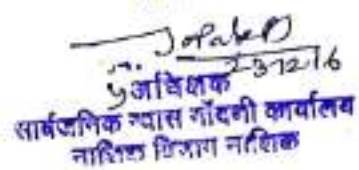 23/12/16
अधिक्षक
सार्वजनिक न्यास नोंदणी कार्यालय
नाशिक विभाग नाशिक